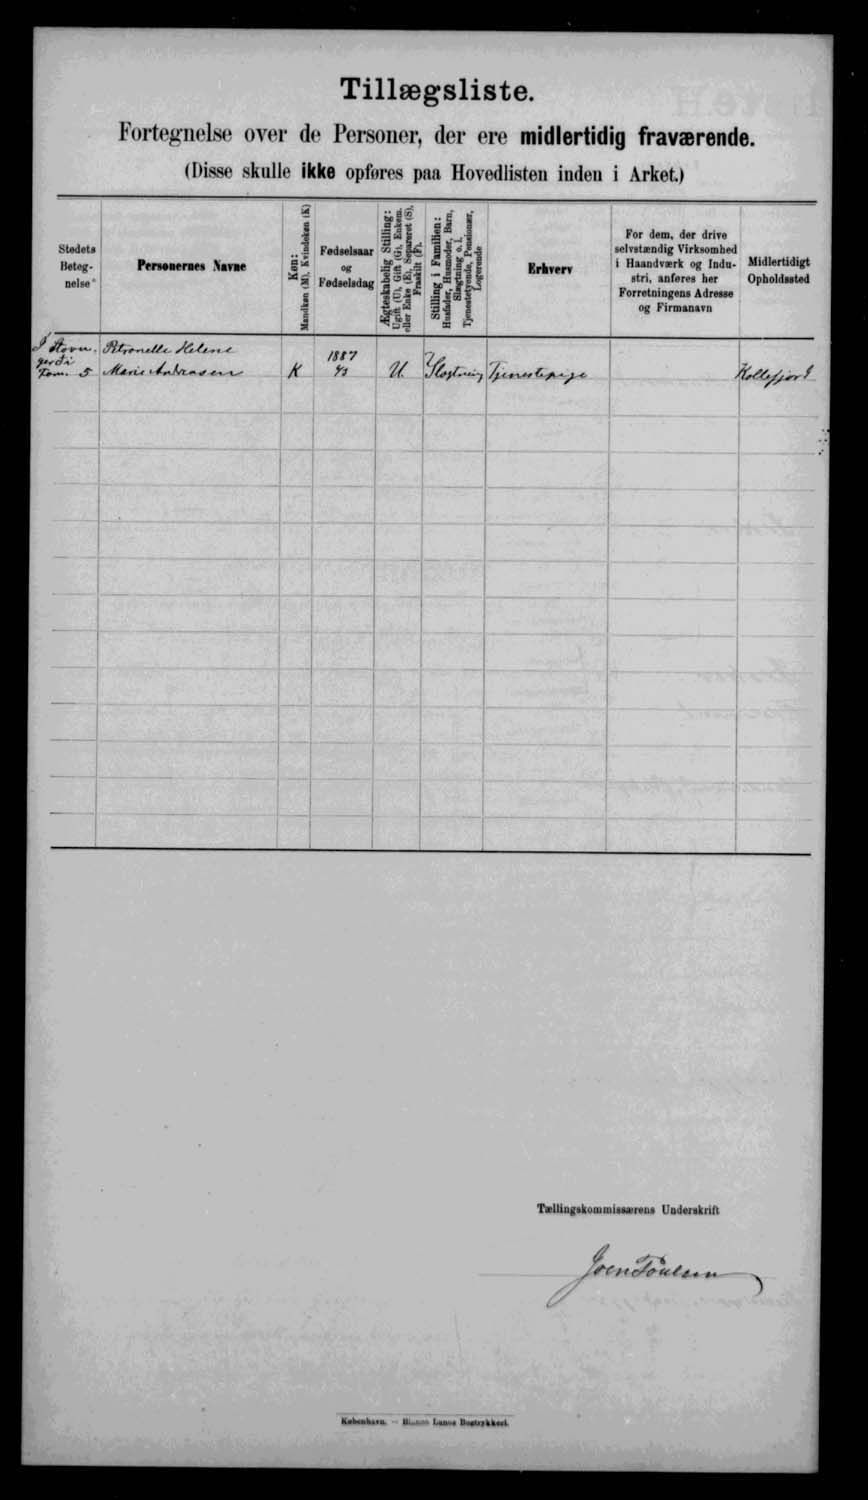 Tillægsliste.
Fortegnelse over de Personer, der ere midlertidig fraværende.
(Disse skulle ikke opføres paa Hovedlisten inden i Arket.)
Stedets
Beteg-
nelse
Personernes Navne
Køn:
Mandkøn (M), Kvindekøn (K)
Fødselsaar
og
Fødselsdag
Ægteskabelig Stilling:
Ugift (U), Gift (G), Enkem.
eller Enke (E), Separeret (S),
Fraskilt (F).
Stilling i Familien:
Husfader, Husmoder, Barn,
Slægtning o. l.
Tjenestetyende, Pensionær,
Logerende
Erhverv
For dem, der drive
selvstændig Virksomhed
i Haandværk og Indu-
stri, anføres her
Forretningens Adresse
og Firmanavn
Midlertidigt
Opholdssted
Petronelle Helene
Marie Andreasen
Fam. 5
K
1887
U.
Slægtning
Tjenestepige
Kollefjord
Tællingskommissærens Underskrift
Joen Poulsen
København. — Bianco Lunos Bogtrykkeri.